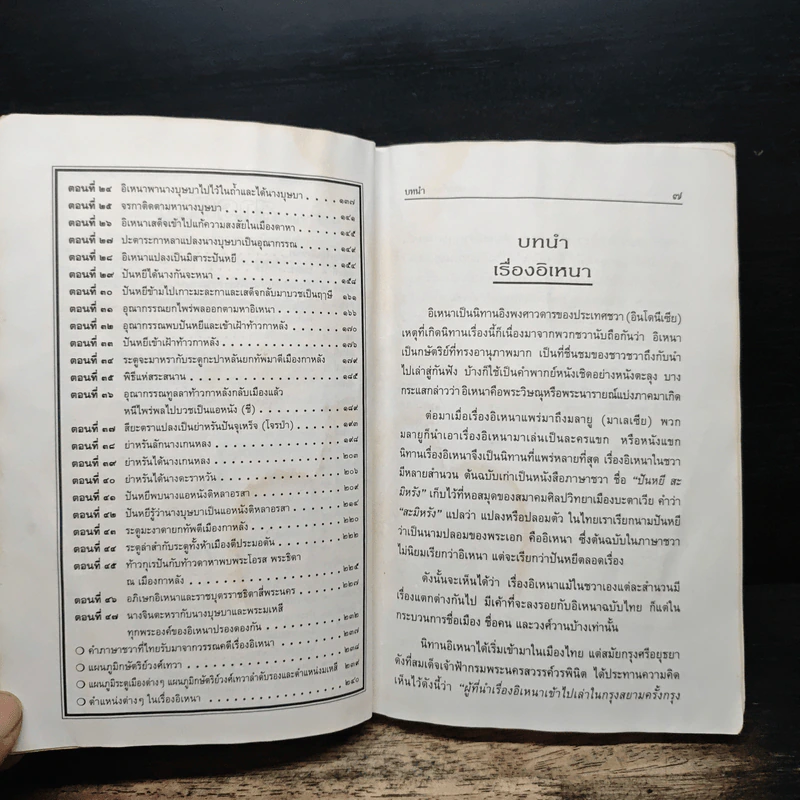 ตอนที่ ๒๔ อิเหนาพานางบุษบาไปไว้ในถ้ำและได้นางบุษบา . . . . ๑๓๗
ตอนที่ ๒๕ จรกาติดตามหานางบุษบา . . . . ๑๔๑
ตอนที่ ๒๖ อิเหนาเสด็จเข้าไปแก้ความสงสัยในเมืองดาหา . . . . ๑๔๕
ตอนที่ ๒๗ ปะตาระกาหลาแปลงนางบุษบาเป็นอุณากรรณ . . . . ๑๔๙
ตอนที่ ๒๘ อิเหนาแปลงเป็นมิสาระปันหยี . . . . ๑๕๔
ตอนที่ ๒๙ ปันหยีได้นางกันจะหนา . . . . ๑๕๘
ตอนที่ ๓๐ ปันหยีข้ามไปเกาะมะละกาและเสด็จกลับมาบวชเป็นฤาษี ๑๖๑
ตอนที่ ๓๑ อุณากรรณยกไพร่พลออกตามหาอิเหนา . . . . ๑๖๖
ตอนที่ ๓๒ อุณากรรณพบปันหยีและเข้าเฝ้าท้าวกาหลัง . . . . ๑๗๐
ตอนที่ ๓๓ ปันหยีเข้าเฝ้าท้าวกาหลัง . . . . ๑๗๖
ตอนที่ ๓๔ ระตูจะมาหรากับระตูกะปาหลันยกทัพมาตีเมืองกาหลัง . . . . ๑๗๙
ตอนที่ ๓๕ พิธีแห่สระสนาน . . . . ๑๘๕
ตอนที่ ๓๖ อุณากรรณทูลลาท้าวกาหลังกลับเมืองแล้ว
หนีไพร่พลไปบวชเป็นแอหนัง (ชี) . . . . ๑๘๙
ตอนที่ ๓๗ สียะตราแปลงเป็นย่าหรันปันจุเหร็จ (โจรป่า) . . . . ๑๙๔
ตอนที่ ๓๘ ย่าหรันลักนางเกนหลง . . . . ๑๙๘
ตอนที่ ๓๙ ย่าหรันได้นางเกนหลง . . . . ๒๐๓
ตอนที่ ๔๐ ย่าหรันได้นางดะราหวัน . . . . ๒๐๖
ตอนที่ ๔๑ ปันหยีพบนางแอหนังติหลาอรสา . . . . ๒๐๙
ตอนที่ ๔๒ ปันหยีรู้ว่านางบุษบาเป็นแอหนังติหลาอรสา . . . . ๒๑๔
ตอนที่ ๔๓ ระตูมะงาดายกทัพตีเมืองกาหลัง . . . . ๒๒๐
ตอนที่ ๔๔ ระตูล่าสำกับระตูทั้งห้าเมืองตีประมอตัน . . . . ๒๒๐
ตอนที่ ๔๕ ท้าวกุเรปันกับท้าวดาหาพบพระโอรส พระธิดา
ณ เมืองกาหลัง . . . . ๒๒๕
ตอนที่ ๔๖ อภิเษกอิเหนาและราชบุตรราชธิดาสี่พระนคร . . . . ๒๒๗
ตอนที่ ๔๗ นางจินตะหรากับนางบุษบาและพระมเหสี
ทุกพระองค์ของอิเหนาปรองดองกัน . . . . ๒๓๒
❍ คำภาษาชวาที่ไทยรับมาจากวรรณคดีเรื่องอิเหนา . . . . ๒๓๗
❍ แผนภูมิกษัตริย์วงศ์เทวา . . . . ๒๓๘
❍ แผนภูมิระตูเมืองต่างๆ แผนภูมิกษัตริย์วงศ์เทวาลำดับรองและตำแหน่งมเหสี ๒๓๙
❍ ตำแหน่งต่างๆ ในเรื่องอิเหนา . . . . ๒๔๐
บทนำ ๗
บทนำ
เรื่องอิเหนา
อิเหนาเป็นนิทานอิงพงศาวดารของประเทศชวา (อินโดนีเซีย)
เหตุที่เกิดนิทานเรื่องนี้ก็เนื่องมาจากพวกชวานับถือกันว่า อิเหนา
เป็นกษัตริย์ที่ทรงอานุภาพมาก เป็นที่ชื่นชมของชาวชวาถึงกับนำ
ไปเล่าสู่กันฟัง บ้างก็ใช้เป็นคำพากย์หนังเชิดอย่างหนังตะลุง บาง
กระแสกล่าวว่า อิเหนาคือพระวิษณุหรือพระนารายณ์แบ่งภาคมาเกิด
ต่อมาเมื่อเรื่องอิเหนาแพร่มาถึงมลายู (มาเลเซีย) พวก
มลายูก็นำเอาเรื่องอิเหนามาเล่นเป็นละครแขก หรือหนังแขก
นิทานเรื่องอิเหนาจึงเป็นนิทานที่แพร่หลายที่สุด เรื่องอิเหนาในชวา
มีหลายสำนวน ต้นฉบับเก่าเป็นหนังสือภาษาชวา ชื่อ “ปันหยี สะ
มิหรัง” เก็บไว้ที่หอสมุดของสมาคมศิลปวิทยาเมืองบะตาเวีย คำว่า
“สะมิหรัง” แปลว่า แปลงหรือปลอมตัว ในไทยเราเรียกนามปันหยี
ว่าเป็นนามปลอมของพระเอก คืออิเหนา ซึ่งต้นฉบับในภาษาชวา
ไม่นิยมเรียกว่าอิเหนา แต่จะเรียกว่าปันหยีตลอดเรื่อง
ดังนั้นจะเห็นได้ว่า เรื่องอิเหนาแม้ในชวาเองแต่ละสำนวนมี
เรื่องแตกต่างกันไป มีเค้าที่จะลงรอยกับอิเหนาฉบับไทย ก็แต่ใน
กระบวนการชื่อเมือง ชื่อคน และวงศ์วานบ้างเท่านั้น
นิทานอิเหนาได้เริ่มเข้ามาในเมืองไทย แต่สมัยกรุงศรีอยุธยา
ดังที่สมเด็จเจ้าฟ้ากรมพระนครสวรรค์วรพินิต ได้ประทานความคิด
เห็นไว้ดังนี้ว่า “ผู้ที่นำเรื่องอิเหนาเข้าไปเล่าในกรุงสยามครั้งกรุง